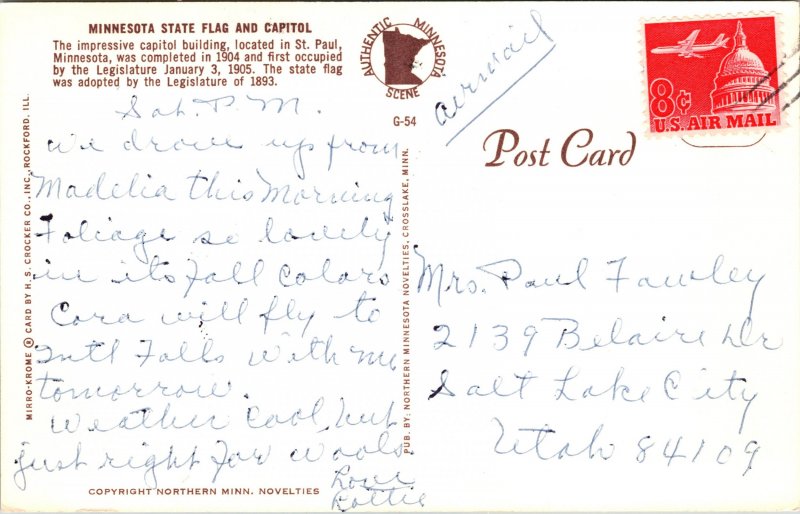 MINNESOTA STATE FLAG AND CAPITOL
The impressive capitol building, located in St. Paul,
Minnesota, was completed in 1904 and first occupied
by the Legislature January 3, 1905. The state flag
was adopted by the Legislature of 1893.
AUTHENTIC MINNESOTA
SCENE
G-54
airmail
8¢
U.S. AIR MAIL
Post Card
Sat. P.M.
We drove up from
Madelia this Morning
Foliage so lovely
in its fall colors
Cora will fly to
Intl Falls with me
tomorrow.
Weather cool, but
just right for wools
Love
Lottie
Mrs. Paul Fawley
2139 Belaire Dr
Salt Lake City
Utah 84109
MIRRO-KROME ® CARD BY H. S. CROCKER CO., INC., ROCKFORD, ILL.
PUB. BY: NORTHERN MINNESOTA NOVELTIES, CROSSLAKE, MINN.
COPYRIGHT NORTHERN MINN. NOVELTIES